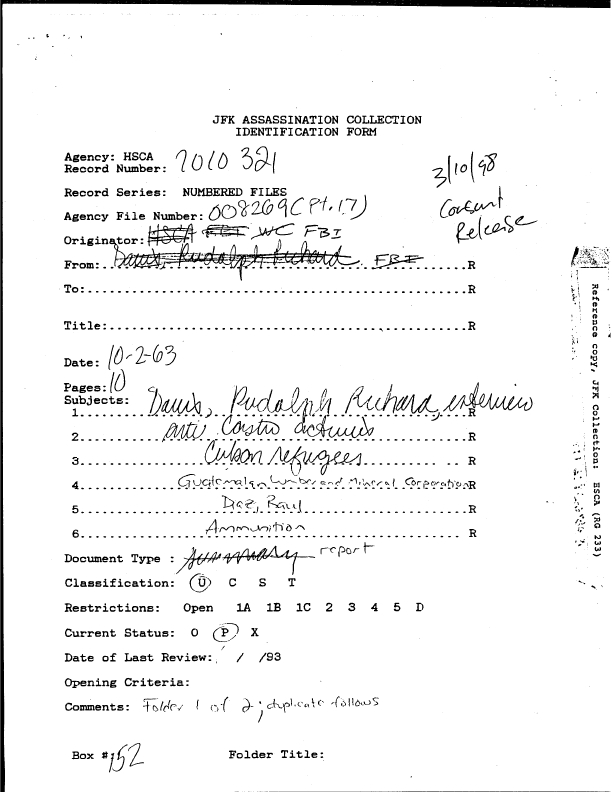 JFK ASSASSINATION COLLECTION
IDENTIFICATION FORM
Agency: HSCA
Record Number: 7010 321
3/10/98
Consent
Release
Record Series: NUMBERED FILES
Agency File Number: 008269 (Pt. 17)
Originator: HSCA FBI WC FBI
From: Davis, Rudolph Richard FBI R
To: R
Title: R
Date: 10-2-63
Pages: 10
Subjects:
1. Davis, Rudolph Richard, interview R
2. anti Castro activities R
3. Cuban refugees R
4. Guatemalan Lumber and Mineral Corporation R
5. Diaz, Raul R
6. Ammunition R
Document Type : summary report
Classification: U C S T
Restrictions: Open 1A 1B 1C 2 3 4 5 D
Current Status: O P X
Date of Last Review: / /93
Opening Criteria:
Comments: Folder 1 of 2; duplicate follows
Box #: 152 Folder Title:
Reference copy, JFK Collection: HSCA (RG 233)